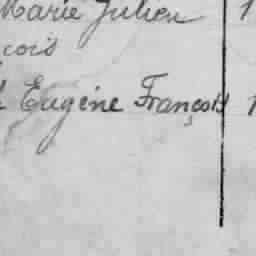 Marie Julien 1
çois
Eugène François 1